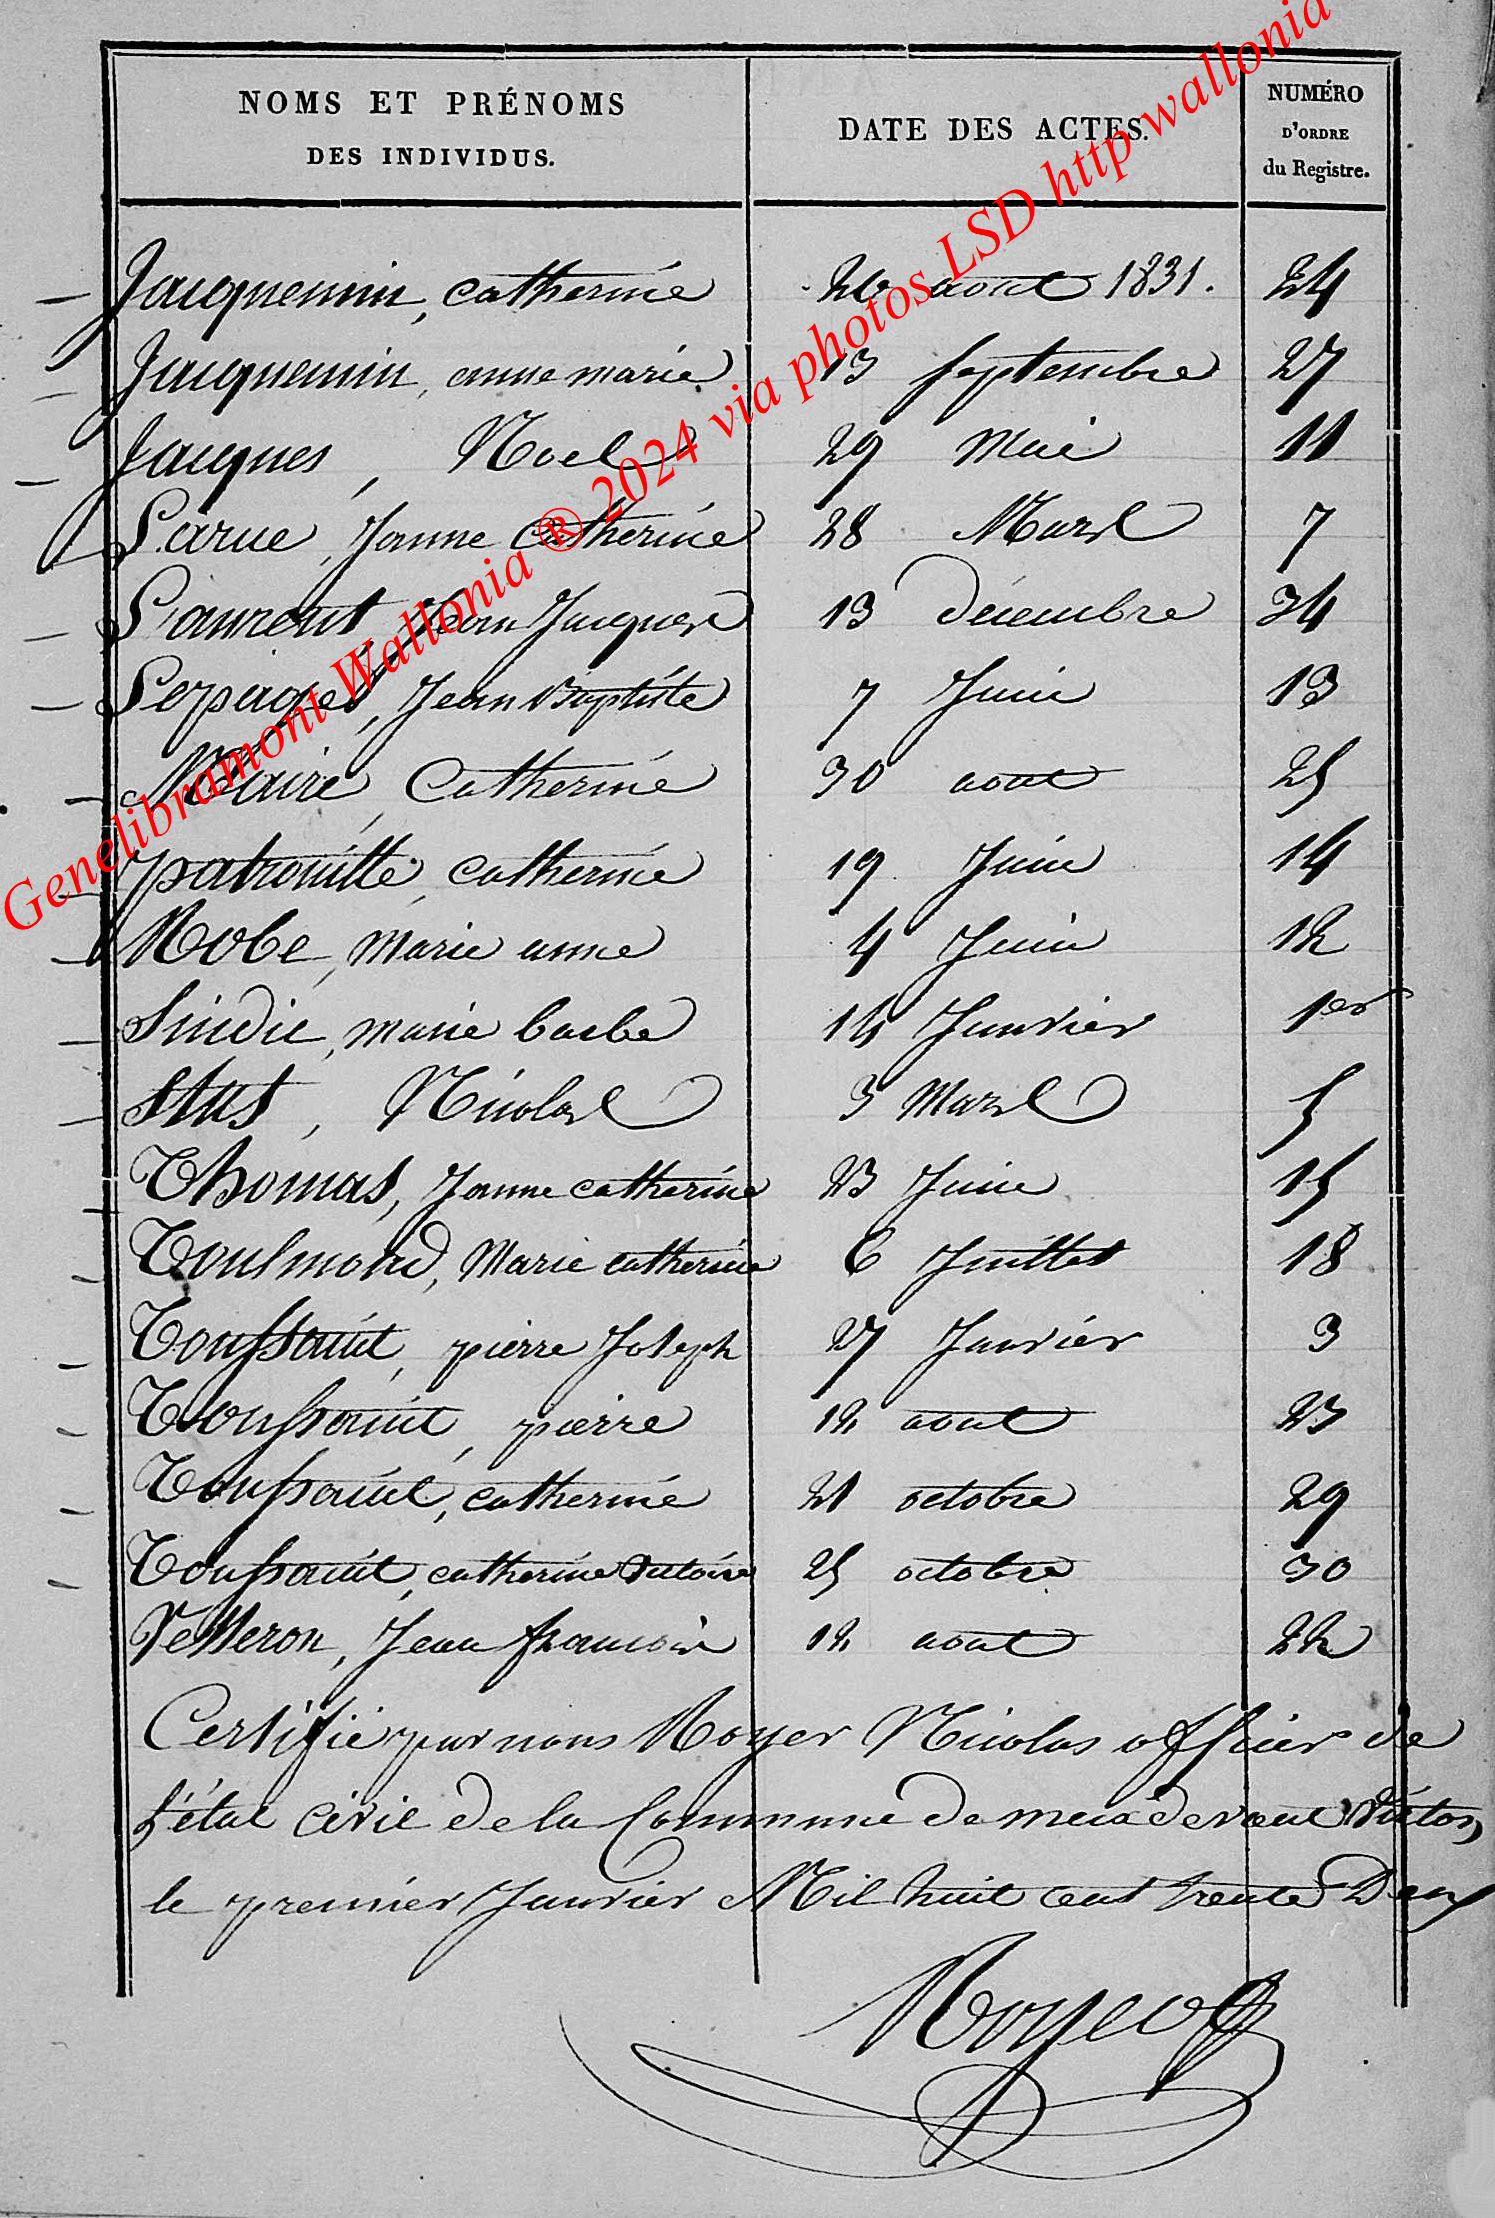 NOMS ET PRÉNOMS
DES INDIVIDUS.
DATE DES ACTES.
NUMÉRO
D'ORDRE
du Registre.
Jacquemin, catherine 26 aout 1831. 24
Jacquemin, anne marie 13 septembre 27
Jacques, Noel 29 Mai 11
Larue, Jeanne Catherine 28 Mars 7
Laurent, Jean Jacques 13 décembre 34
Lepage, Jean Baptiste 7 Juin 13
Maire, Catherine 30 aout 25
patrouille, catherine 19 Juin 14
Robe, Marie anne 4 Juin 12
Sindic, marie barbe 14 Janvier 1er
Stas, Nicolas 3 Mars 5
Thomas, Jeanne catherine 23 Juin 15
Toulmond, Marie catherine 6 Juillet 18
Toussaint, pierre Joseph 27 Janvier 3
Toussaint, pierre 12 aout 23
Toussaint, catherine 21 octobre 29
Toussaint, catherine Victoire 25 octobre 30
Vesseron, Jean francois 12 aout 22
Certifié par nous Royer Nicolas officier de
L'état civil de la Commune de meix devant Virton,
le premier Janvier Mil huit cent trente Deux
Royer
Genelibramont Wallonia ® 2024 via photos LSD http wallonia